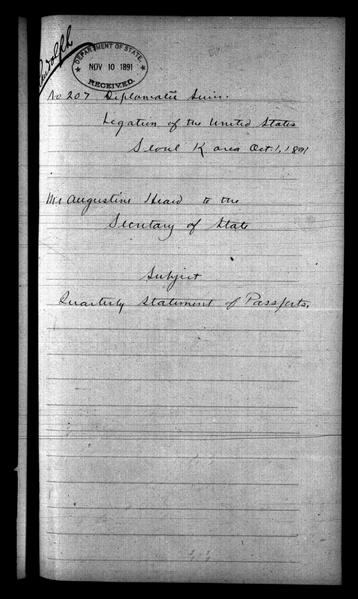 DEPARTMENT OF STATE.
NOV 10 1891
RECEIVED.
No 207 Diplomatic Series.
Legation of the United States
Seoul Korea Oct. 1, 1891
Mr Augustine Heard to the
Secretary of State
Subject
Quarterly Statement of Passports.